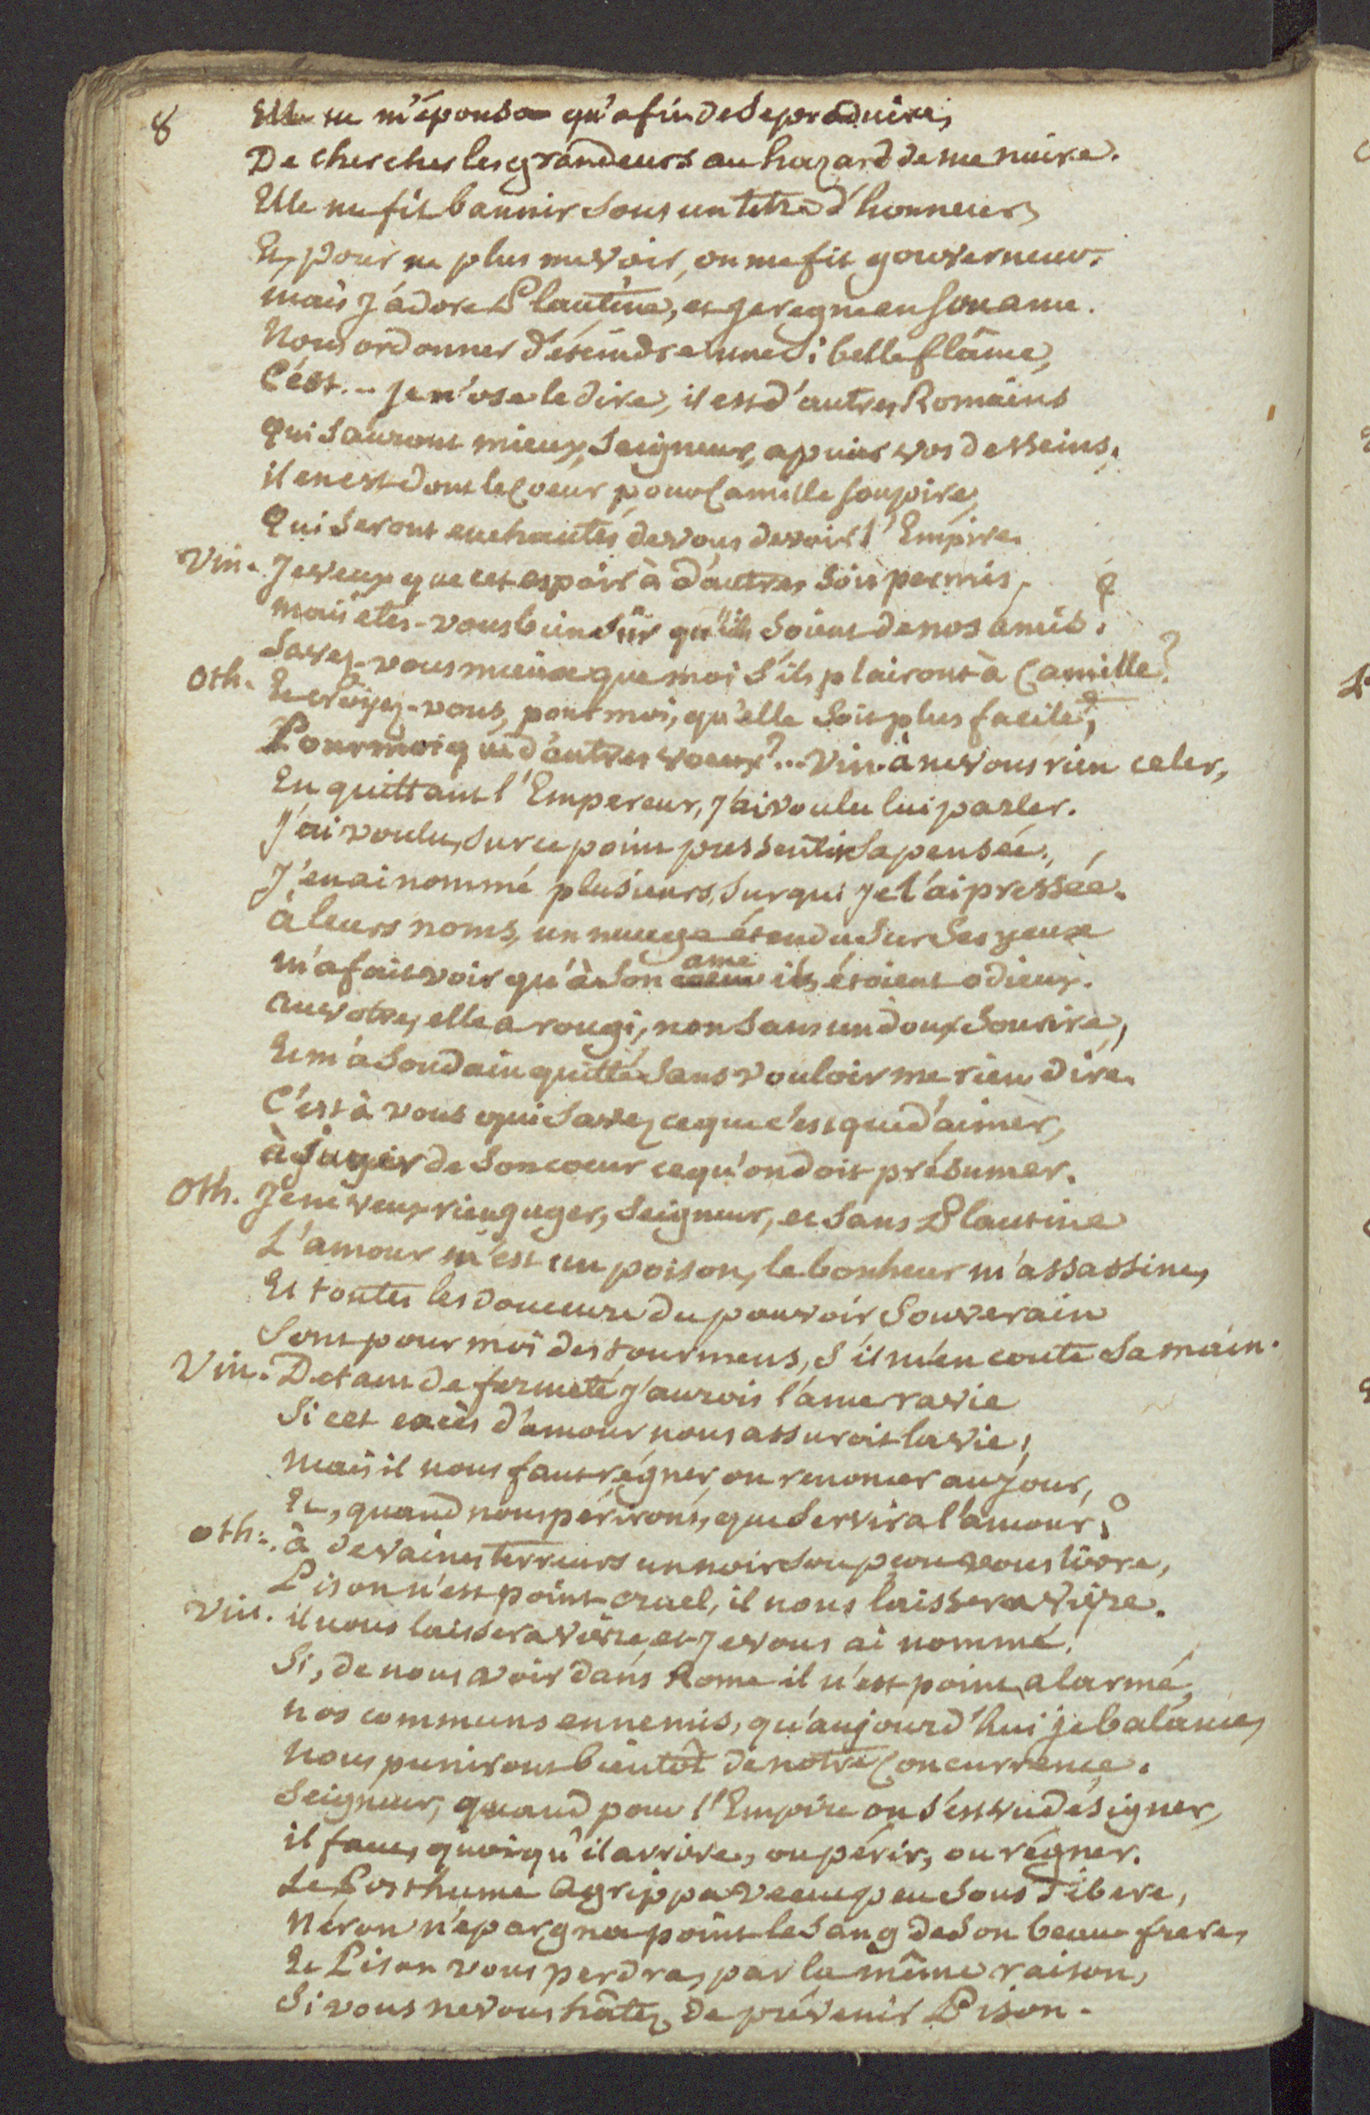 8
Elle ne m'épousa qu'afin de se produire,
De chercher les grandeurs au hazard de me nuire.
Elle me fit bannir sous un titre d'honneur,
Et, pour ne plus me voir, on me fit gouverneur.
mais j'adore Plautine, et je regne en son ame.
Nous ordonner d'éteindre une si belle flâme,
C'est... je n'ose le dire, il est d'autres Romains
Qui sauront mieux, Seigneur, apuier vos desseins,
il en est dont le coeur pour Camille soupire,
Qui seront enchantés de vous devoir l'Empire.
Vin. Je veux que cet espoir à d'autres soit permis,
mais etes-vous bien sûr qu'ils soient de nos amis?
Savez-vous mieux que moi s'ils plairont à Camille?
Oth. Et croyez-vous, pour moi, qu'elle soit plus facile?
Pour moi que d'autres voeux?... Vin. à ne vous rien celer,
En quittant l'Empereur, j'ai voulu lui parler.
J'ai voulu, sur ce point pressentir sa pensée,
J'en ai nommé plusieurs, sur qui je l'ai pressée.
à leurs noms, un nuage étendu sur ses yeux
m'a fait voir qu'à son coeur ame ils étoient odieux.
au votre, elle a rougi, non sans un doux sourire,
Et m'a soudain quitté sans vouloir me rien dire.
C'est à vous qui savez ce que c'est que d'aimer,
à juger de son coeur ce qu'on doit présumer.
Oth. Je ne veux rien juger, Seigneur, et sans Plautine
L'amour m'est un poison, le bonheur m'assassine,
Et toutes les douceurs du pouvoir souverain
Sont pour moi des tourmens, s'il m'en coute sa main.
Vin. De tant de fermeté j'aurois l'ame ravie
Si cet excès d'amour nous assuroit la vie;
mais il nous faut régner, ou renoncer au jour,
Et, quand nous périrons, que servira l'amour?
Oth. à de vaines terreurs un noir soupçon vous livre,
Pison n'est point cruel, il nous laissera vivre.
Vin. il nous laissera vivre, et je vous ai nommé!
Si, de nous voir dans Rome il n'est point alarmé,
nos communs ennemis, qu'aujourd'hui je balance,
nous puniront bientôt de notre concurrence.
Seigneur, quand pour l'Empire on s'est vu désigner,
il faut, quoiqu'il arrive, ou périr, ou régner.
Le Posthume Agrippa vecut peu sous Tibere,
Néron n'épargna point le sang de son beau frere,
Et Pison vous perdra, par la même raison,
Si vous ne vous hâtez de prévenir Pison.